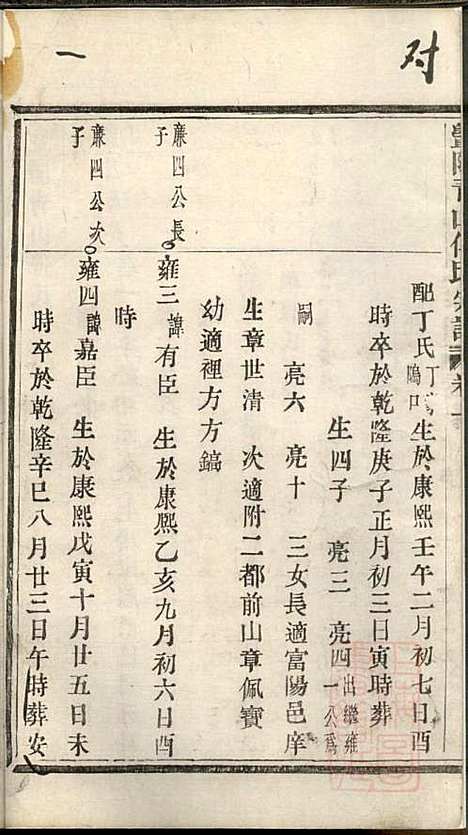 対
一
配丁氏丁塢口生於康熙壬午二月初七日酉
時卒於乾隆庚子正月初三日寅時葬
生四子 亮三 亮四出繼雍一公爲
嗣 亮六 亮十 三女長適富陽邑庠
生章世清 次適附二都前山章佩寶
幼適裡方方鎬
廉四公長子 雍三諱有臣 生於康熙乙亥九月初六日酉
時
廉四公次子 雍四諱嘉臣 生於康熙戊寅十月廿五日未
時卒於乾隆辛巳八月廿三日午時葬安